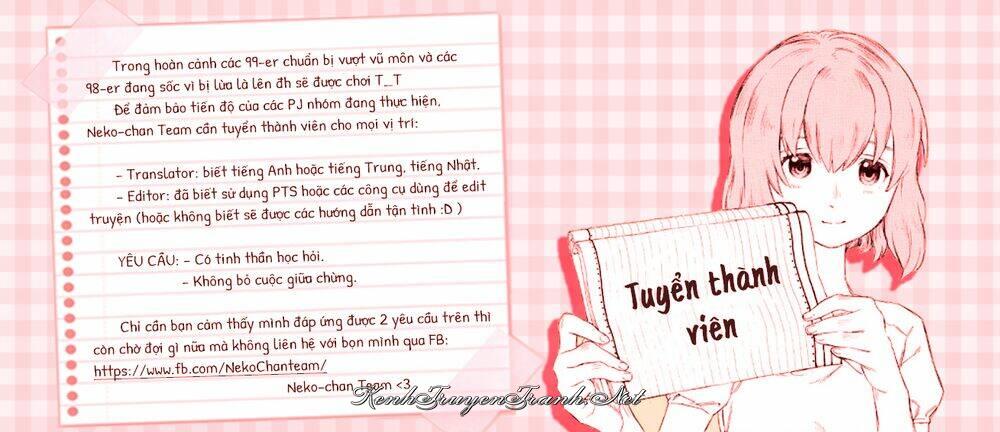 Trong hoàn cảnh các 99-er chuẩn bị vượt vũ môn và các
98-er đang sốc vì bị lừa là lên đh sẽ được chơi T_T
Để đảm bảo tiến độ của các PJ nhóm đang thực hiện,
Neko-chan Team cần tuyển thành viên cho mọi vị trí:
- Translator: biết tiếng Anh hoặc tiếng Trung, tiếng Nhật.
- Editor: đã biết sử dụng PTS hoặc các công cụ dùng để edit
truyện (hoặc không biết sẽ được các hướng dẫn tận tình :D )
YÊU CẦU: - Có tinh thần học hỏi.
- Không bỏ cuộc giữa chừng.
Chỉ cần bạn cảm thấy mình đáp ứng được 2 yêu cầu trên thì
còn chờ đợi gì nữa mà không liên hệ với bọn mình qua FB:
https://www.fb.com/NekoChanteam/
Neko-chan Team <3
KenhTruyenTranh.Net
Tuyển thành
viên